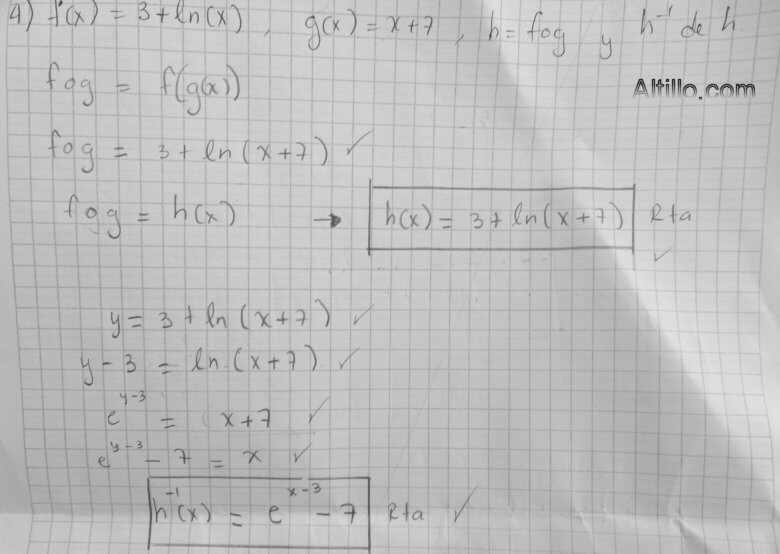 4) f(x) = 3 + ln(x) , g(x) = x + 7 , h = fog y h⁻¹ de h
fog = f(g(x))
Altillo.com
fog = 3 + ln (x + 7) ✓
fog = h(x) → h(x) = 3 + ln (x + 7) Rta ✓
y = 3 + ln (x + 7) ✓
y - 3 = ln (x + 7) ✓
e^{y-3} = x + 7 ✓
e^{y-3} - 7 = x ✓
h⁻¹(x) = e^{x-3} - 7 Rta ✓